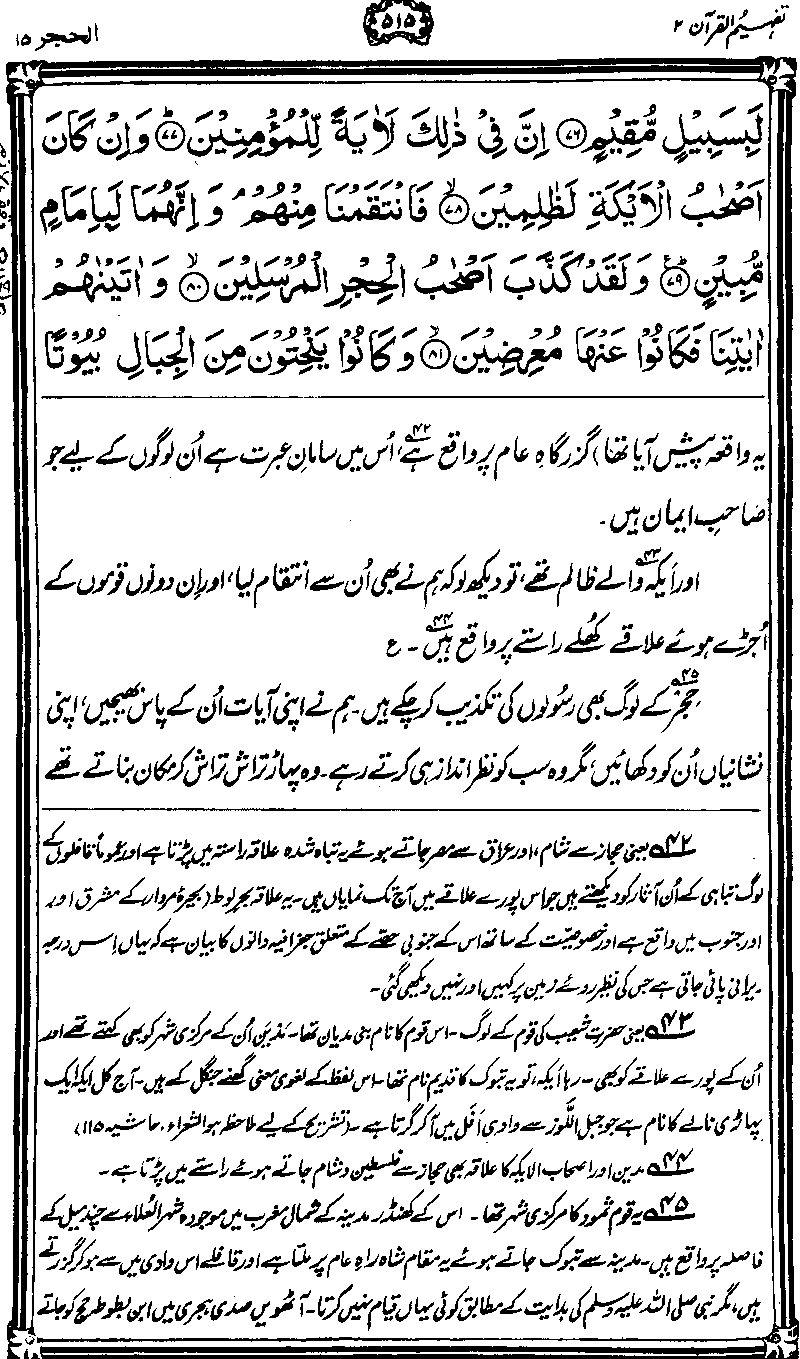 تفہیم القرآن ۲
۵۱۵
الحجر ۱۵
لَبِسَبِيْلٍ مُّقِيْمٍ ﴿۷۶﴾ اِنَّ فِيْ ذٰلِكَ لَاٰيَةً لِّلْمُؤْمِنِيْنَ ﴿۷۷﴾ وَاِنْ كَانَ
اَصْحٰبُ الْاَيْكَةِ لَظٰلِمِيْنَ ﴿۷۸﴾ فَانْتَقَمْنَا مِنْهُمْ وَاِنَّهُمَا لَبِاِمَامٍ
مُّبِيْنٍ ﴿۷۹﴾ وَلَقَدْ كَذَّبَ اَصْحٰبُ الْحِجْرِ الْمُرْسَلِيْنَ ﴿۸۰﴾ وَاٰتَيْنٰهُمْ
اٰيٰتِنَا فَكَانُوْا عَنْهَا مُعْرِضِيْنَ ﴿۸۱﴾ وَكَانُوْا يَنْحِتُوْنَ مِنَ الْجِبَالِ بُيُوْتًا
یہ واقعہ پیش آیا تھا) گزرگاہِ عام پر واقع ہے۴۲، اُس میں سامانِ عبرت ہے اُن لوگوں کے لیے جو
صاحبِ ایمان ہیں۔
اور اَیکہ۴۳ والے ظالم تھے، تو دیکھ لو کہ ہم نے بھی اُن سے انتقام لیا، اور اِن دونوں قوموں کے
اُجڑے ہوئے علاقے کھُلے راستے پر واقع ہیں۴۴۔ ع
حِجْر۴۵ کے لوگ بھی رسُولوں کی تکذیب کر چکے ہیں۔ ہم نے اپنی آیات اُن کے پاس بھیجیں، اپنی
نشانیاں اُن کو دکھائیں، مگر وہ سب کو نظر انداز ہی کرتے رہے۔ وہ پہاڑ تراش تراش کر مکان بناتے تھے
۴۲ یعنی حجاز سے شام، اور عراق سے مصر جاتے ہوئے یہ تباہ شدہ علاقہ راستہ میں پڑتا ہے اور عموماً قافلوں کے
لوگ تباہی کے اُن آثار کو دیکھتے ہیں جو اس پورے علاقے میں آج تک نمایاں ہیں۔ یہ علاقہ بحرِ لوط (بحیرۂ مردار کے مشرق اور
اور جنوب میں واقع ہے اور خصوصیّت کے ساتھ اس کے جنوبی حصّے کے متعلق جغرافیہ دانوں کا بیان ہے کہ یہاں اِس درجہ
یرانی پائی جاتی ہے جس کی نظیر روئے زمین پر کہیں اور نہیں دیکھی گئی۔
۴۳ یعنی حضرت شعیب کی قوم کے لوگ۔ اس قوم کا نام بنی مدیان تھا۔ مَدْیَن اُن کے مرکزی شہر کو بھی کہتے تھے اور
اُن کے پورے علاقے کو بھی۔ رہا اَیکہ، تو یہ تبوک کا قدیم نام تھا۔ اس لفظ کے لغوی معنی گھنے جنگل کے ہیں۔ آج کل ایکہ ایک
پہاڑی نالے کا نام ہے جو جبل اللَّوز سے وادی اَفَل میں آکر گرتا ہے۔ (تشریح کے لیے ملاحظہ ہو الشعراء، حاشیہ ۱۱۵)
۴۴ مدین اور اصحاب الایکہ کا علاقہ بھی حجاز سے فلسطین و شام جاتے ہوئے راستے میں پڑتا ہے۔
۴۵ یہ قوم ثمود کا مرکزی شہر تھا۔ اس کے کھنڈر مدینہ کے شمال مغرب میں موجودہ شہر العُلاء سے چند میل کے
فاصلہ پر واقع ہیں۔ مدینہ سے تبوک جاتے ہوئے یہ مقام شاہ راہِ عام پر ملتا ہے اور قافلے اس وادی میں سے ہو کر گزرتے
ہیں، مگر نبی صلی اللہ علیہ وسلم کی ہدایت کے مطابق کوئی یہاں قیام نہیں کرتا۔ آٹھویں صدی ہجری میں ابن بطوطہ حج کو جاتے